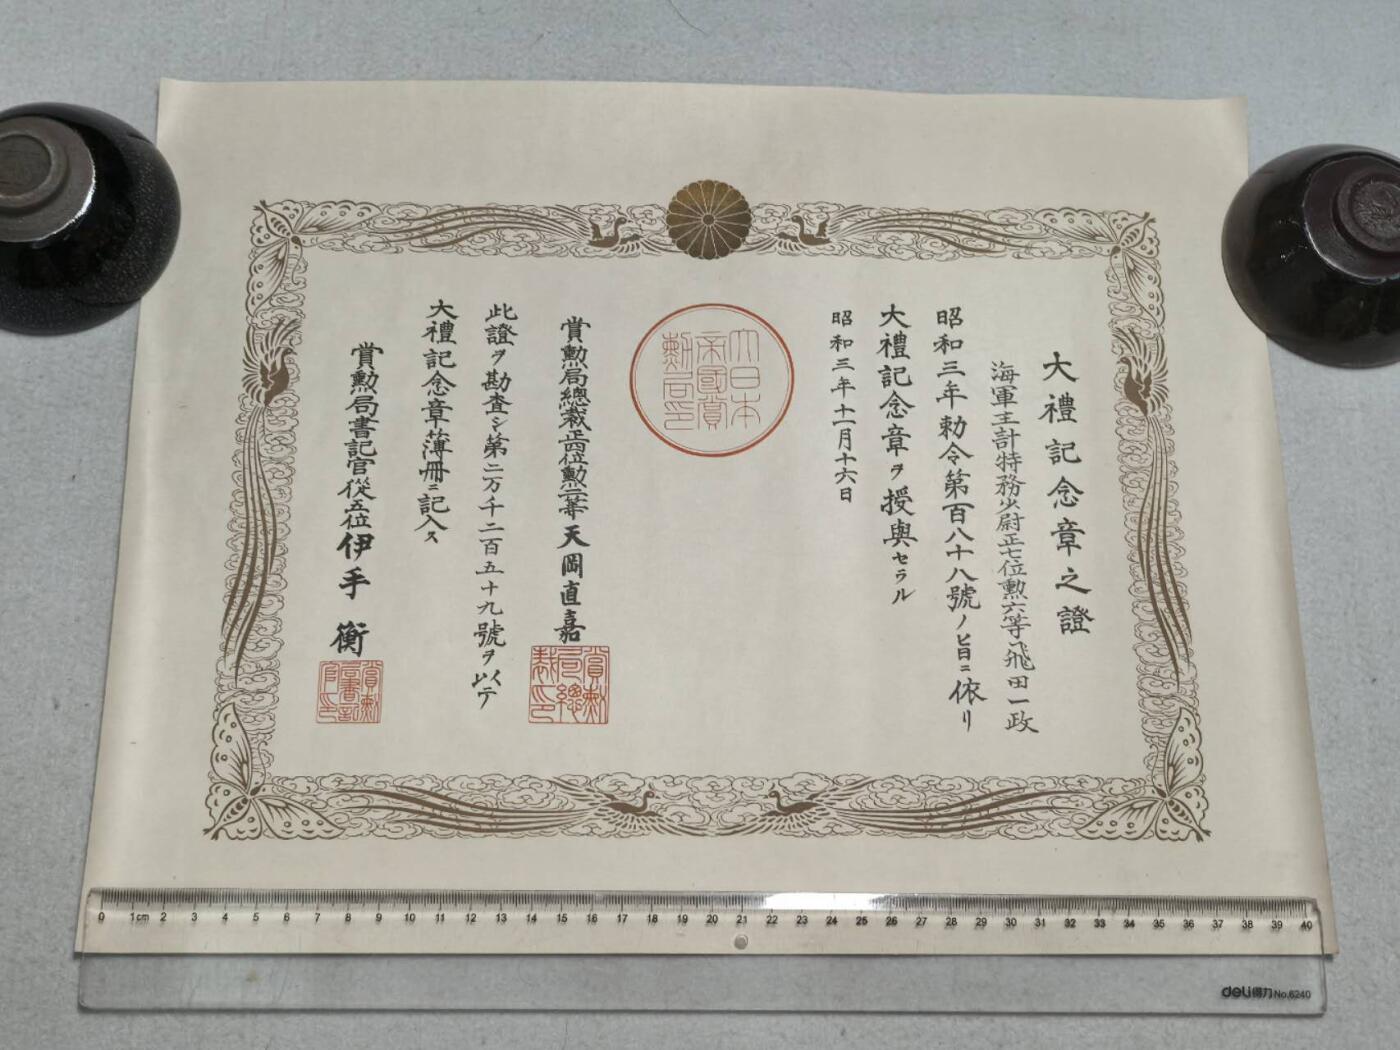 大禮記念章之證
海軍主計特務少尉正七位勲六等飛田一政
昭和三年勅令第百八十八號ノ旨ニ依リ
大禮記念章ヲ授與セラル
昭和三年十一月十六日
大日本
帝國賞
勲局印
賞勲局總裁正四位勲二等天岡直嘉
賞勲
局總
裁印
此證ヲ勘査シ第二万千二百五十九號ヲ以テ
大禮記念章簿冊ニ記入ス
賞勲局書記官從五位伊手衡
賞勲
局書記
官印
0 1cm 2 3 4 5 6 7 8 9 10 11 12 13 14 15 16 17 18 19 20 21 22 23 24 25 26 27 28 29 30 31 32 33 34 35 36 37 38 39 40
deli得力 No.6240